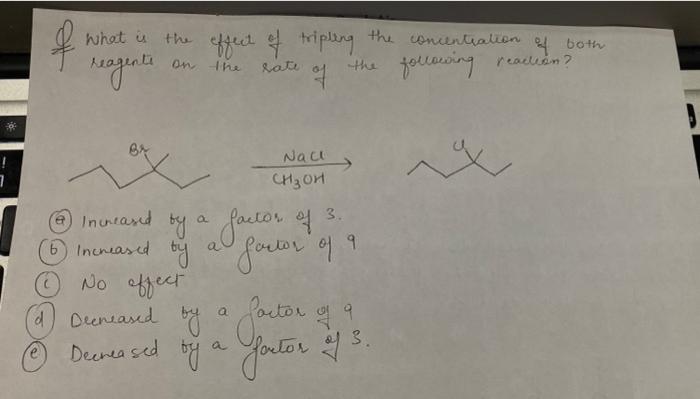 Q What is the effect of tripling the concentration of both
reagents on the rate of the following reaction?
Br
NaCl
CH3OH
Cl
(a) Increased by a factor of 3.
(b) Increased by a factor of 9
(c) No effect
(d) Decreased by a factor of 9
(e) Decreased by a factor of 3.